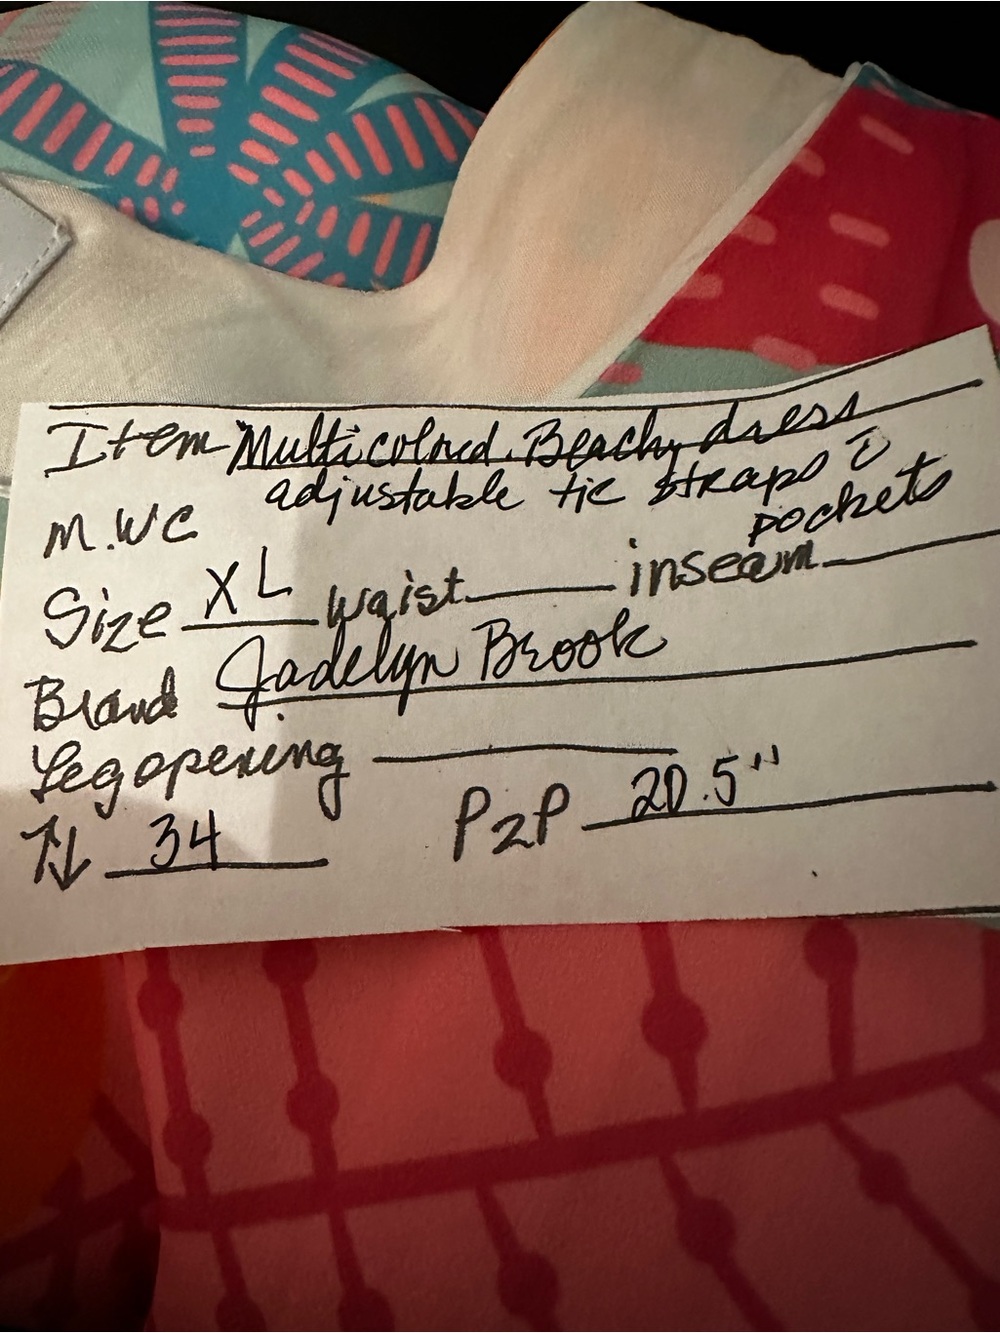 Item Multicolored Beachy dress
adjustable tie straps c̄
pockets
M.WC
Size XL waist inseam
Brand Jadelyn Brook
Leg opening
↑↓ 34 P2P 20.5"